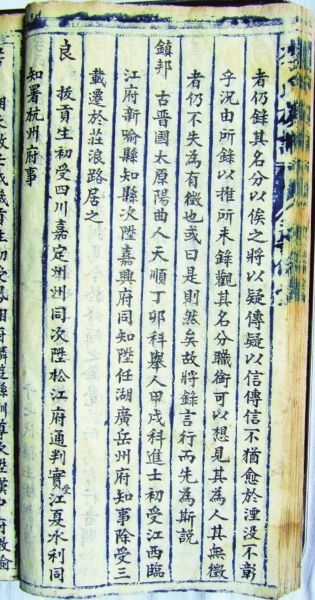 者仍錄其名分以俟之將以疑傳疑以信傳信不猶愈於湮没不彰
乎況由所錄以推所未錄觀其名分職銜可以想見其為人其無徵
者仍不失為有徵也或曰是則然矣故將錄言行而先為斯説
鎮邦　古晉國太原陽曲人天順丁卯科舉人甲戌科進士初受江西臨
江府新喻縣知縣次陞嘉興府同知陞任湖廣岳州府知事除受三
載遷於莊浪路居之
良　拔貢生初受四川嘉定州州同次陞松江府通判實受江夏水利同
知署杭州府事